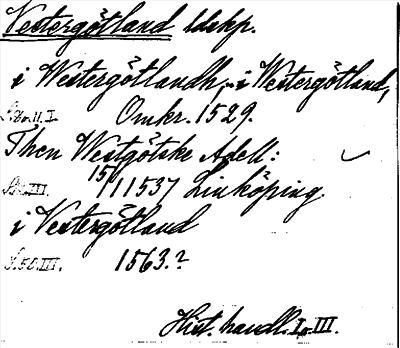 Vestergötland ldskp.
i Westergötlandh, i Westergötland,
Omkr. 1529.
Then Westgötske Adell:
15/1 1537 Linköping.
i Vestergötland
S. 50. III. 1563.?
Hist. handl. I o. III.